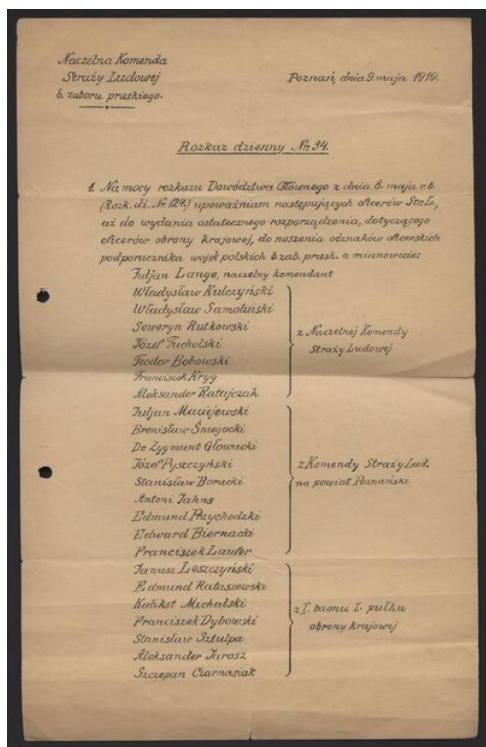 Naczelna Komenda
Straży Ludowej
b. zaboru pruskiego.
Poznań, dnia 9. maja 1919.
Rozkaz dzienny Nr. 34.
1. Na mocy rozkazu Dowództwa Głównego z dnia 8. maja r.b.
(Rozk. dz. Nr. 124.) upoważniam następujących oficerów Str. L.,
aż do wydania ostatecznego rozporządzenia, dotyczącego
oficerów obrony krajowej, do noszenia odznaków oficerskich
podporucznika wojsk polskich b. zab. prusk. a mianowicie:
Juljan Lange, naczelny komendant
Władysław Kulczyński
Władysław Samolziński
Seweryn Rutkowski
Józef Tucholski
Teodor Bobowski
Franciszek Kryg
Aleksander Ratajczak
z Naczelnej Komendy
Straży Ludowej
Juljan Maciejewski
Bronisław Śniegocki
Dr Zygmunt Głowacki
Józef Pyszczyński
Stanisław Borucki
Antoni Jahns
Edmund Przychodzki
Edward Biernacki
Franciszek Laufer
z Komendy Straży Lud.
na powiat Poznański
Janusz Leszczyński
Edmund Rataszewski
Kalikst Michalski
Franciszek Dybowski
Stanisław Sztulpa
Aleksander Jurosz
Szczepan Czarnasiak
z I. baonu I. pułku
obrony krajowej